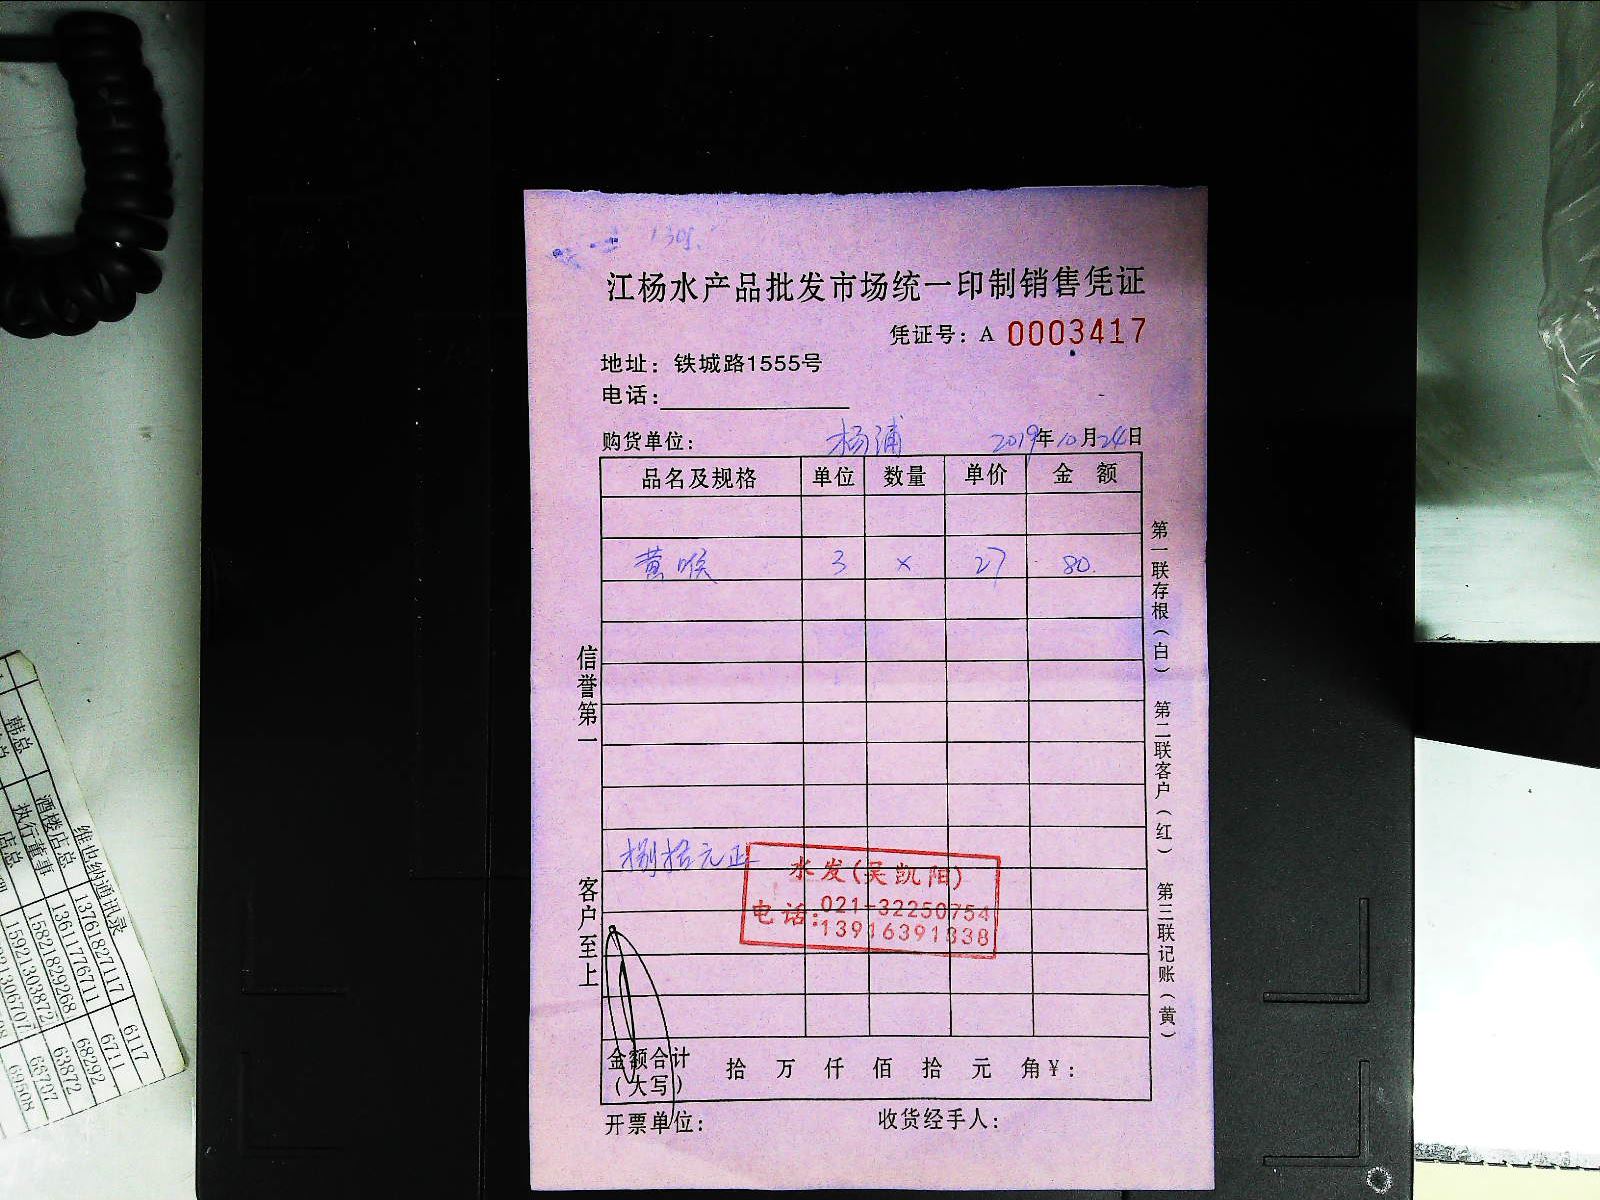 江杨水产品批发市场统一印制销售凭证
凭证号：A 0003417
地址：铁城路1555号
电话：
购货单位： 杨浦 2019年10月24日
品名及规格 单位 数量 单价 金 额
黄喉 3 × 27 80.
捌拾元正
水发(吴凯阳)
电话:021-32250754
13916391338
金额合计（大写） 拾 万 仟 佰 拾 元 角¥：
开票单位： 收货经手人：
信誉第一
客户至上
第一联存根（白） 第二联客户（红） 第三联记账（黄）
维也纳通讯录
韩总
酒楼店总 13761827117 6117
执行董事 13611776711 6711
店总 15821829268 68292
15921303872 63872